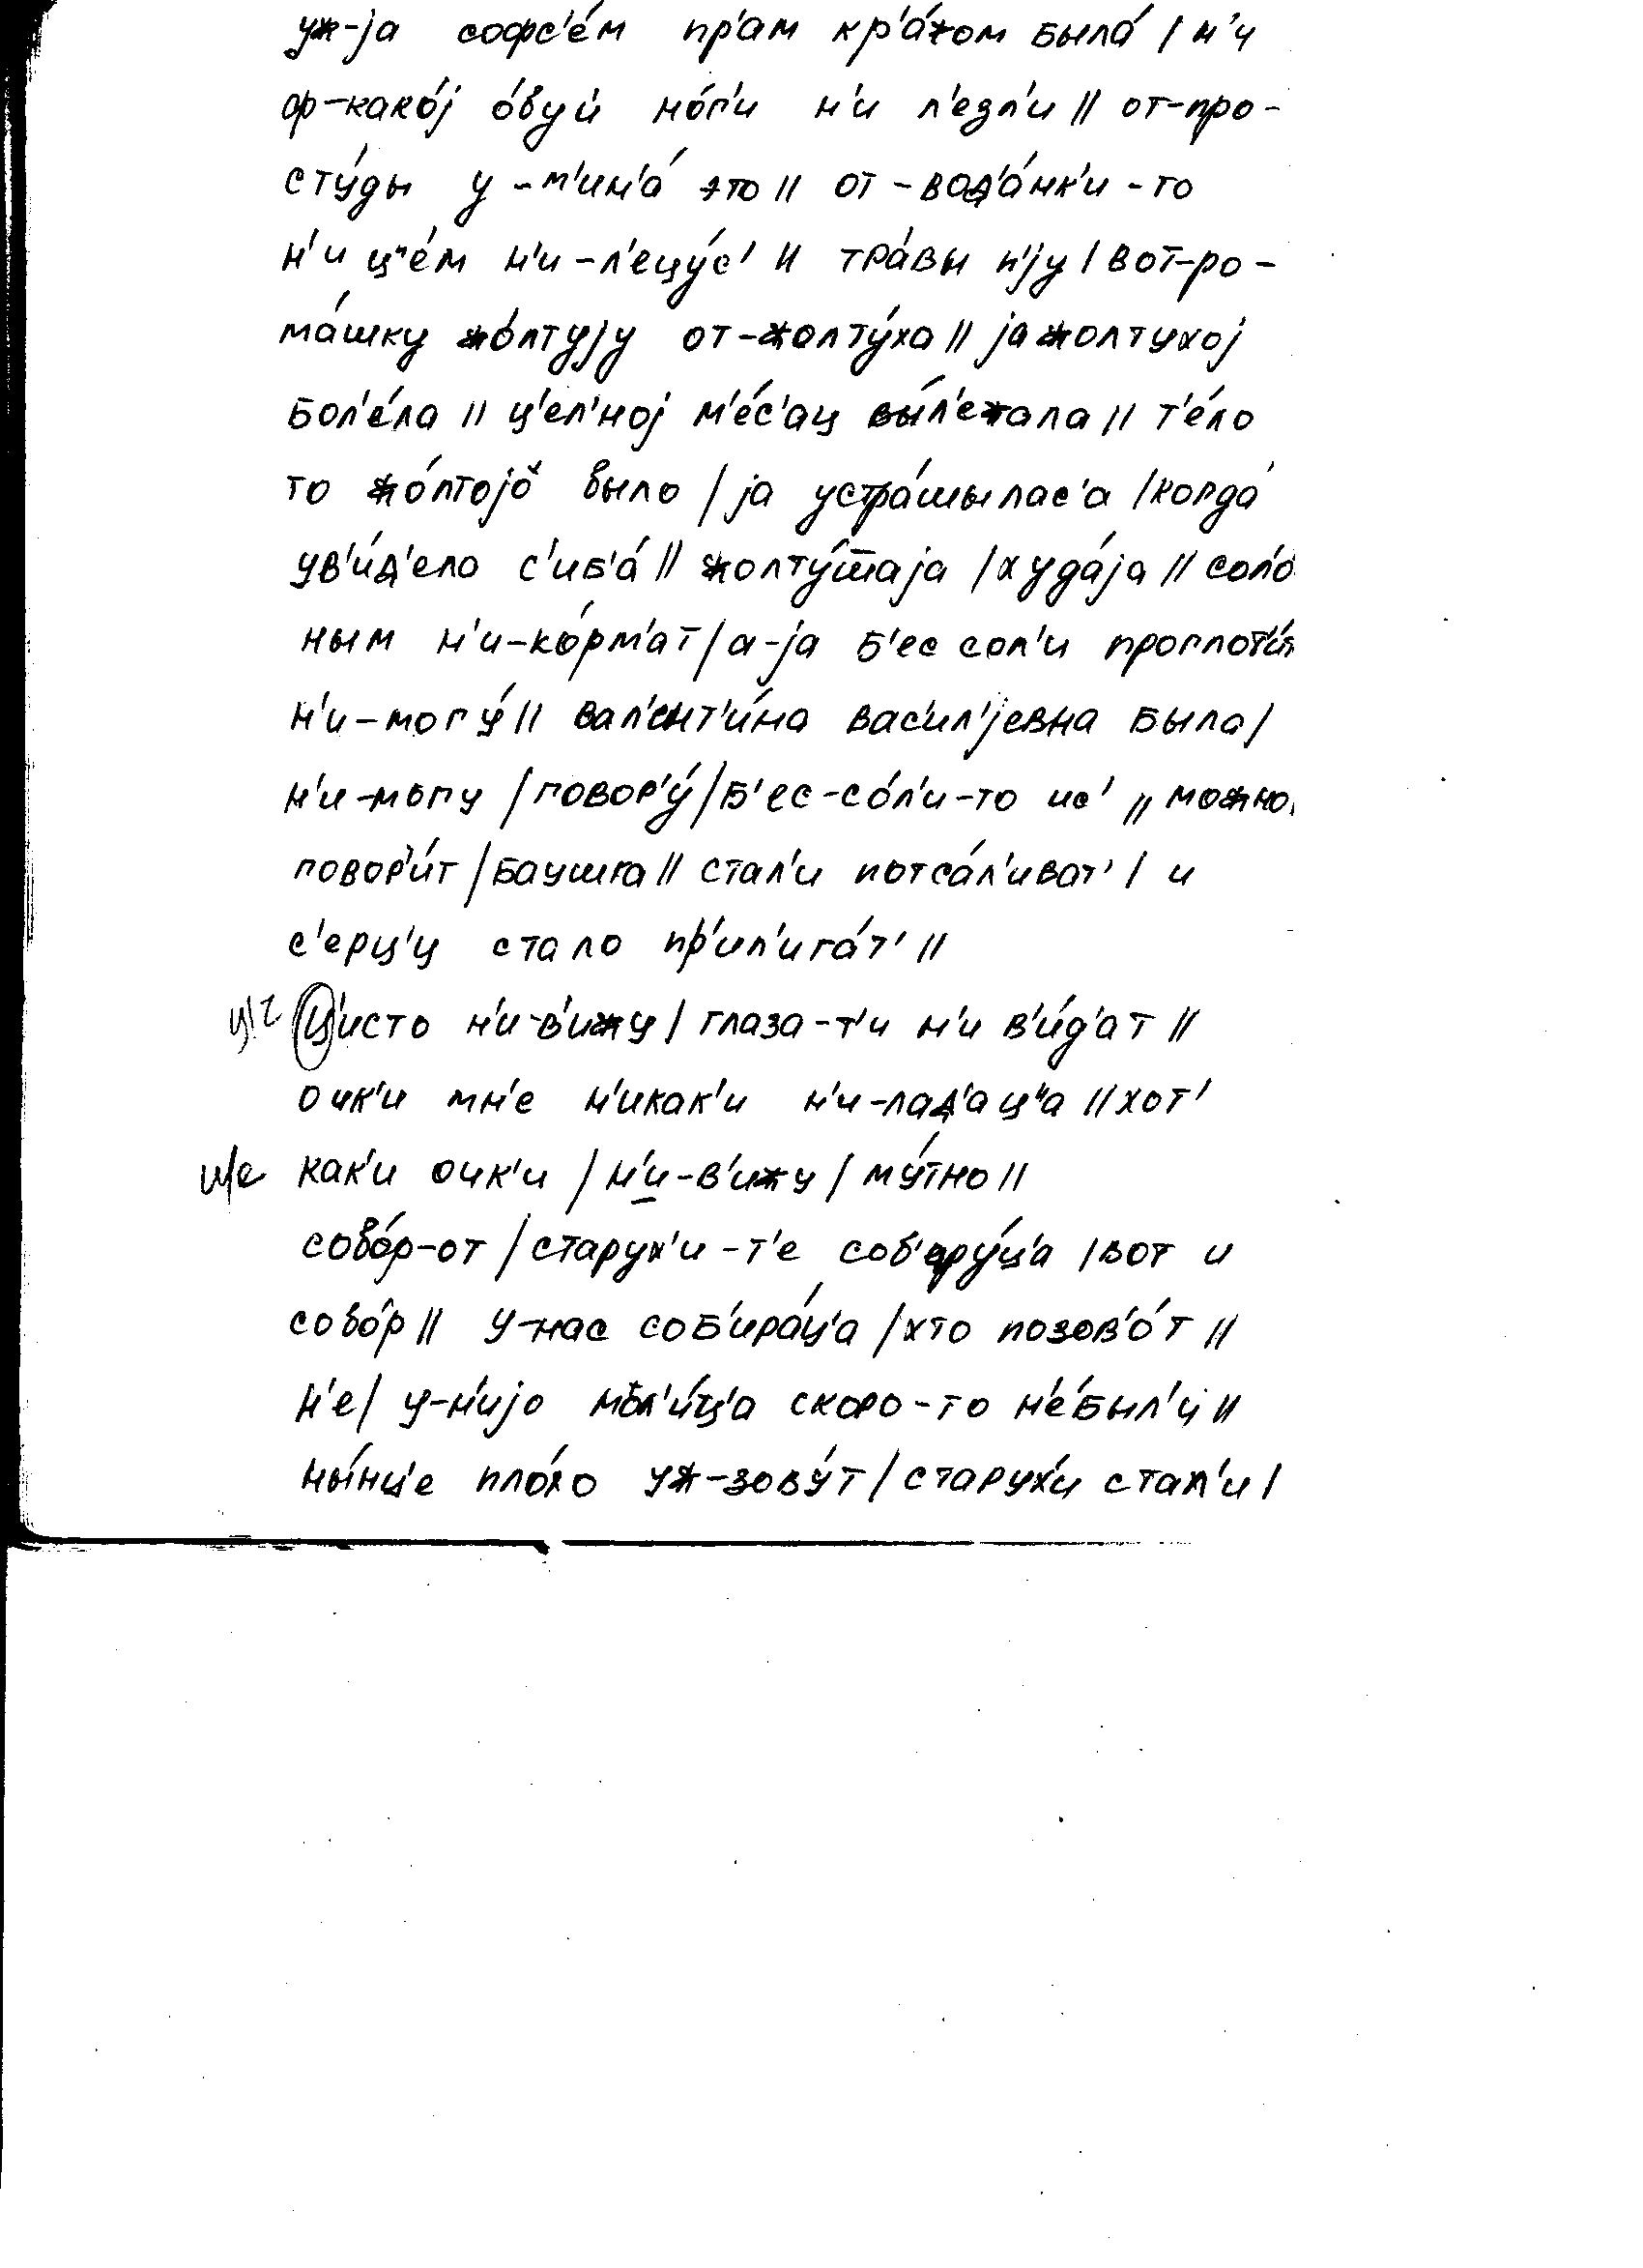 уж-jа софс'е́м пр'ам кр'а́жом была́ / н'и
ф-како́j о́буй но́г'и н'и л'езл'и // от-про-
сту́ды у-м'ин'а́ это // от-вод'а́нк'и-то
н'и ц"е́м н'и-л'ецу́с' // тра́вы п'jу / вот-ро-
ма́шку жо́лтуjу от-жолту́ха // jа жолтухоj
бол'е́ла // ц'ел'ноj м'е́с'ац вы́л'ежала // т'е́ло
то жо́лтоjо было / jа устра́шылас'а / когда́
ув'и́д'ело с'иб'а́ // жолту́шаjа / худа́jа // сол'о́
ным н'и-ко́рм'ат / а-jа б'ес сол'и проглот'и́т
н'и-могу́ // вал'ент'и́на вас'ил'jевна была /
н'и-могу / говор'у́ / б'ес-со́л'и-то ис' // можно,
говор'и́т / баушка // стал'и потса́л'иват' / и
с'ерц'и стало пр'ил'ига́т' //
ц'исто н'и-в'ижу / глаза-т'и н'и в'и́д'ат //
очк'и мн'е н'икак'и н'и-лад'ац"а // хот'
как'и очк'и / н'и-в'ижу / му́тно //
собо́р-от / старух'и-т'е соб'еру́ц'а / вот и
собо́р // у-нас соб'ира́ц'а / хто позов'о́т //
н'е / у-н'иjо мол'и́ц'а скоро-то н'е́был'и //
ны́нц'е пло́хо уж-зову́т / старух'и стал'и /